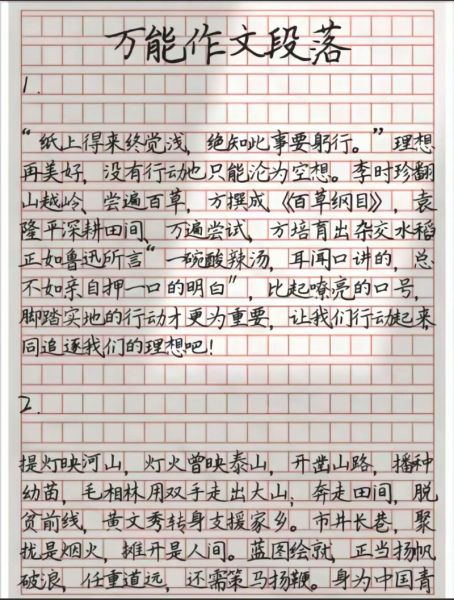 万能作文段落
1.
“纸上得来终觉浅，绝知此事要躬行。”理想
再美好，没有行动也只能沦为空想。李时珍翻
山越岭、尝遍百草，方撰成《百草纲目》，袁
隆平深耕田间、万遍尝试，方培育出杂交水稻
正如鲁迅所言“一碗酸辣汤，耳闻口讲的，总
不如亲自押一口的明白”，比起嘹亮的口号，
脚踏实地的行动才更为重要，让我们行动起来，
同追逐我们的理想吧！
2.
提灯映河山，灯火曾映泰山，开凿山路，播种
幼苗，毛相林用双手走出大山；奔走田间，脱
贫前线，黄文秀转身支援家乡。市井长巷，聚
拢是烟火，摊开是人间。蓝图绘就，正当扬帆
破浪，任重道远，还需策马扬鞭。身为中国青